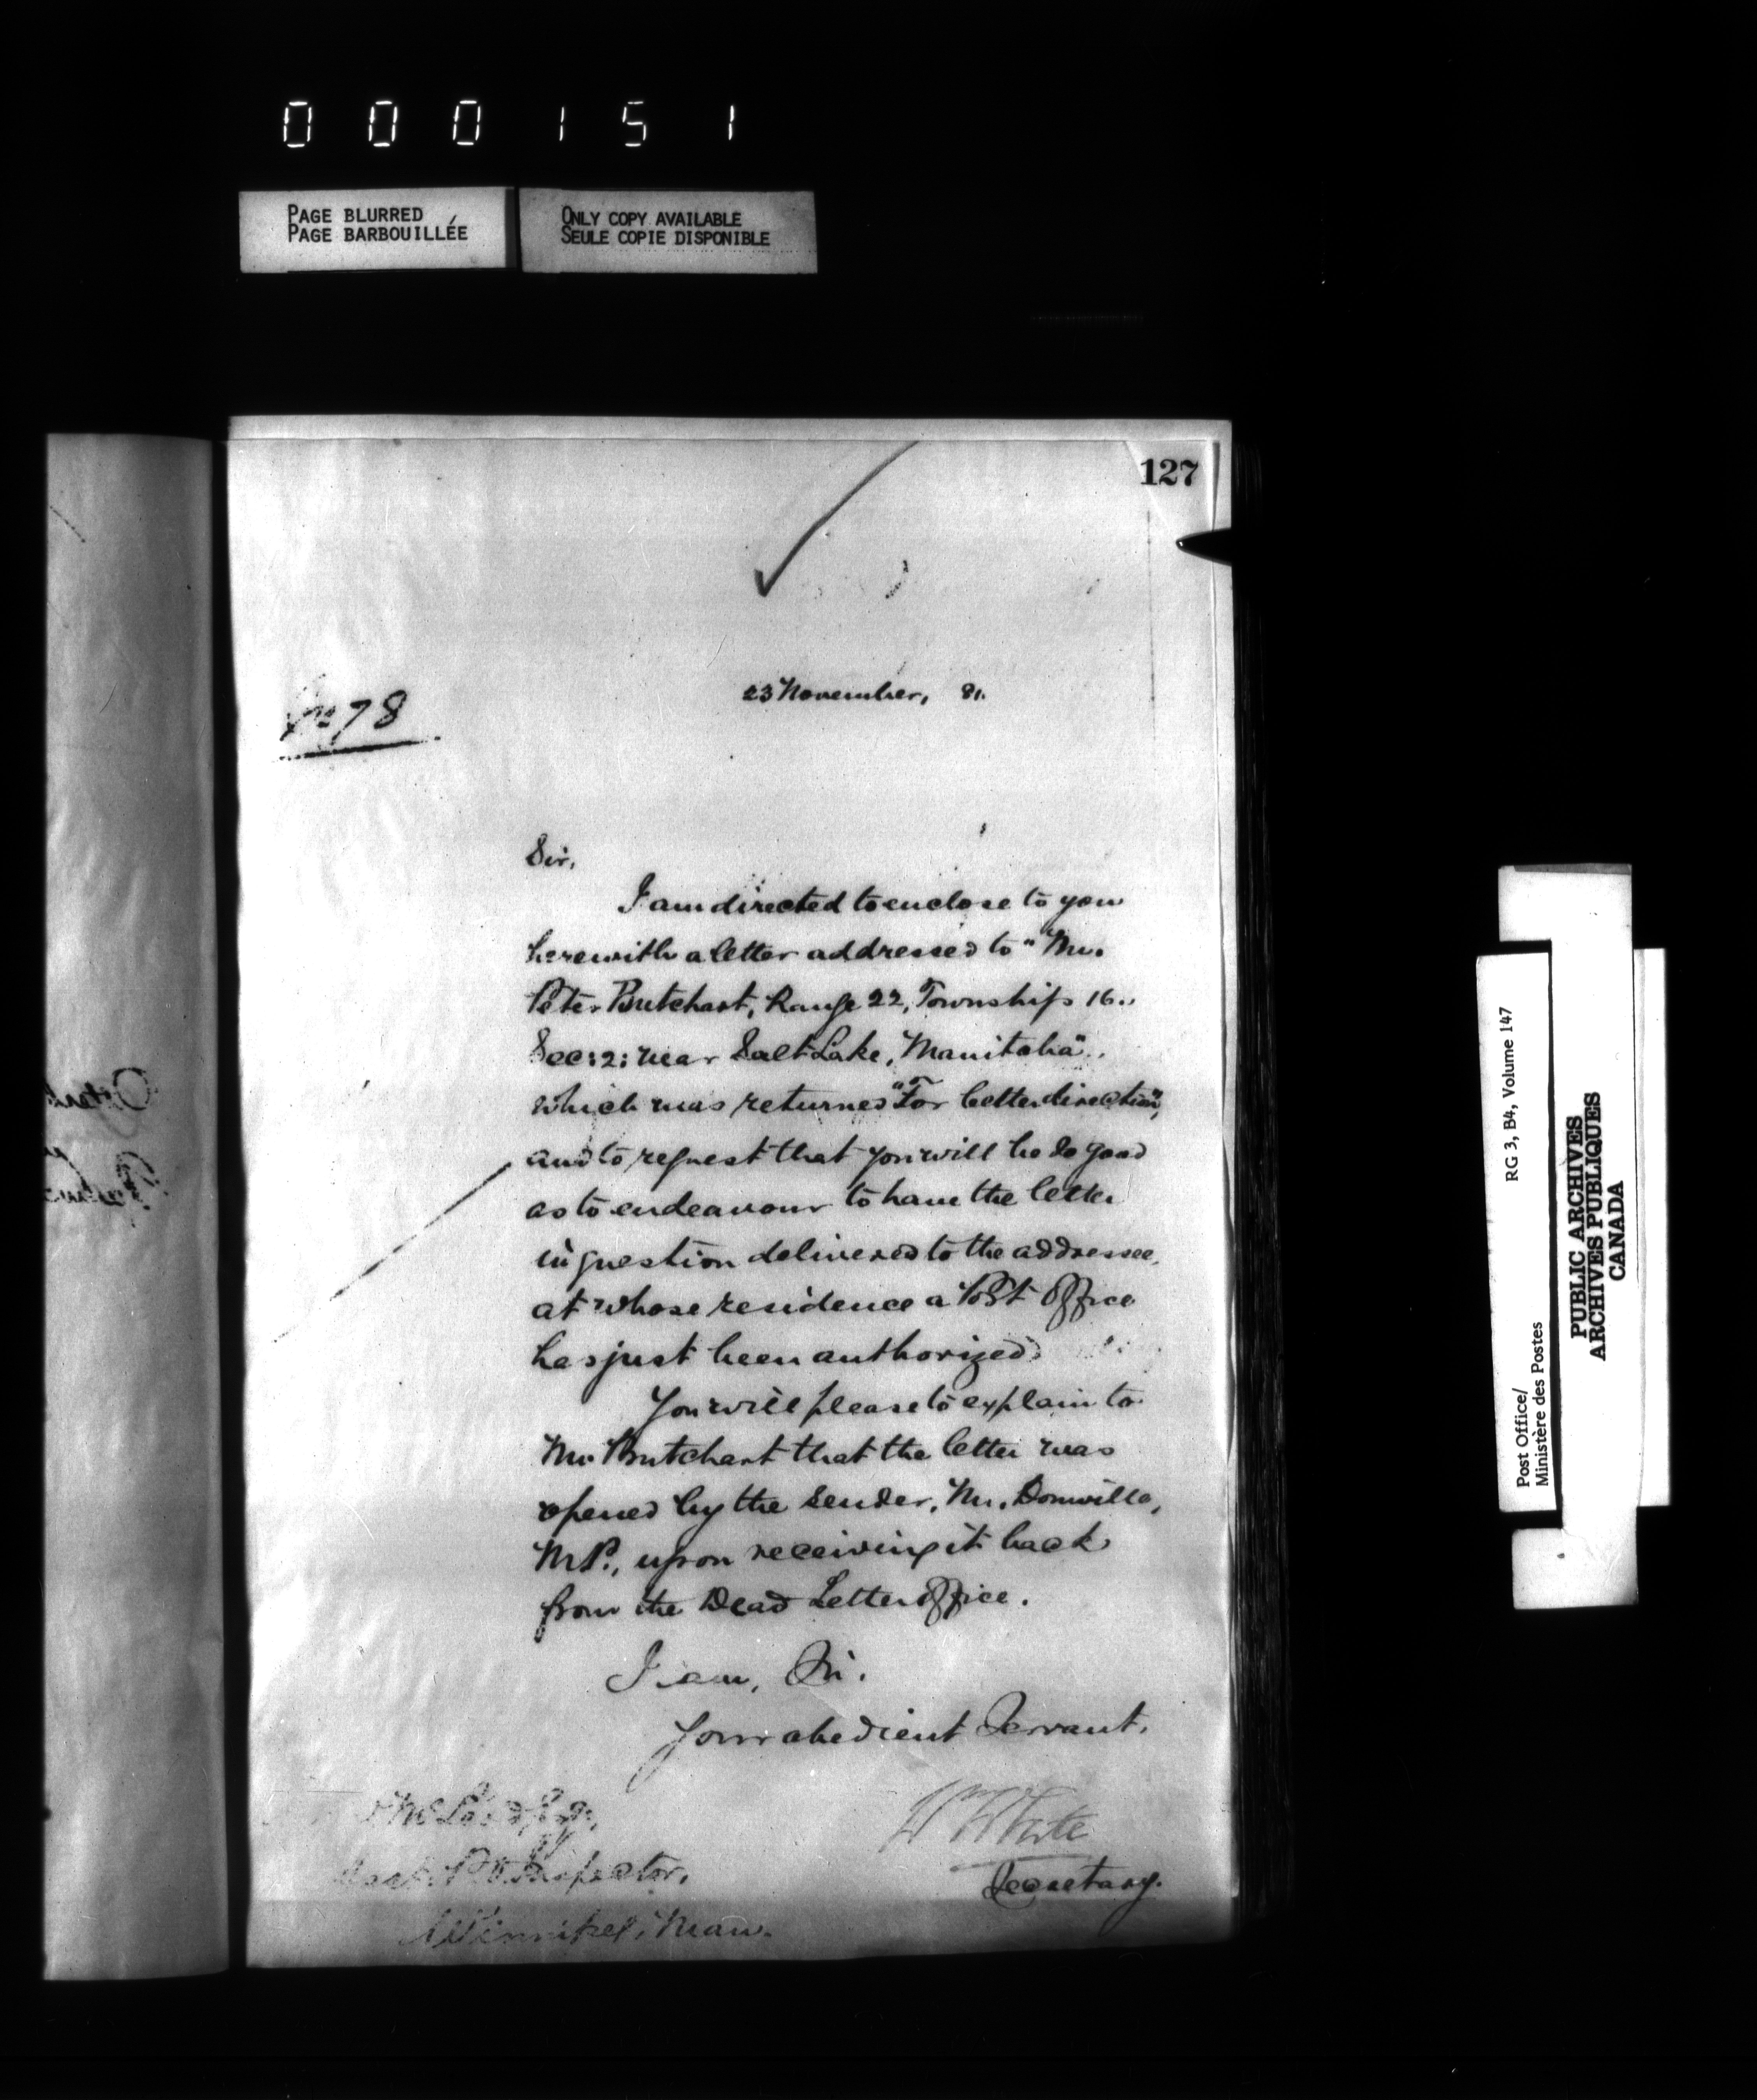 000151
PAGE BLURRED
PAGE BARBOUILLÉE
ONLY COPY AVAILABLE
SEULE COPIE DISPONIBLE
127
23 November, 81.
No 78
Sir,
I am directed to enclose to you
herewith a letter addressed to "Mr.
Peter Butchart, Range 22, Township 16.,
Sec: 2: near Salt Lake, Manitoba".,
which was returned "For better direction",
and to request that you will be so good
as to endeavour to have the letter
in question delivered to the addressee,
at whose residence a Post Office
has just been authorized.
You will please to explain to
Mr. Butchart that the letter was
opened by the sender, Mr. Domville,
M.P., upon receiving it back
from the Dead Letter Office.
I am, Sir.
Your obedient Servant.
W White
Secretary.
McLeod Esq.
P.O. Inspector,
Winnipeg, Man.
Post Office/
Ministère des Postes
RG 3, B4, Volume 147
PUBLIC ARCHIVES
ARCHIVES PUBLIQUES
CANADA